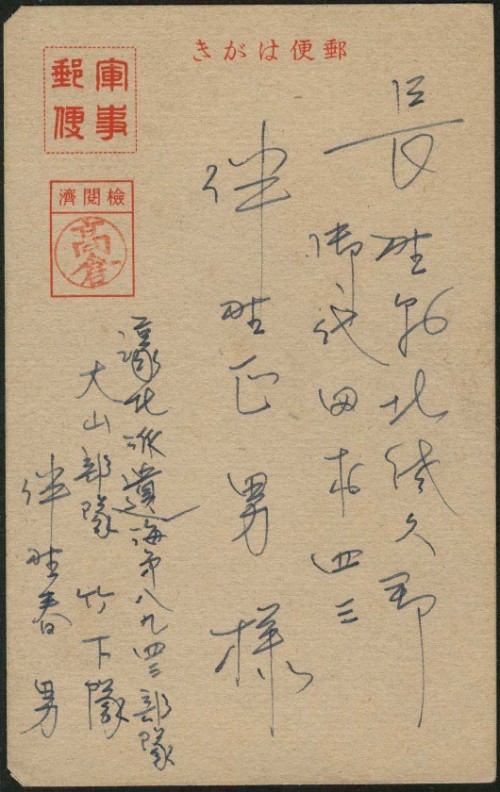 郵便はがき
軍事
郵便
檢閱濟
高倉
長野県北佐久郡
御代田村四三
伴野正男様
濠北派遣海第八九四三部隊
大山部隊 竹下隊
伴野春男